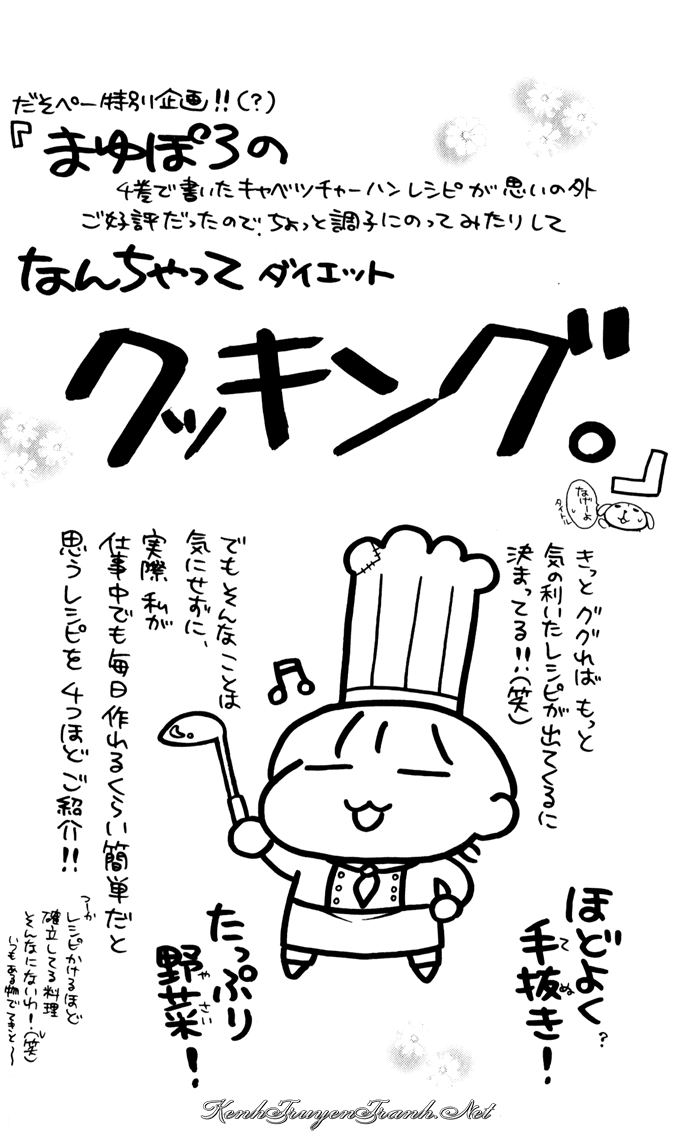 だそペー特別企画!!(?)
『まゆぽろの
4巻で書いたキャベツチャーハンレシピが思いの外
ご好評だったので、ちょっと調子にのってみたりして
なんちゃってダイエット
クッキング。』
なげーよ
タイトル
きっとググればもっと
気の利いたレシピが出てくるに
決まってる!!(笑)
でもそんなことは
気にせずに、
実際私が
仕事中でも毎日作れるくらい簡単だと
思うレシピを4つほどご紹介!!
ほどよく?
手抜き!
てぬ
たっぷり
野菜!
やさい
つーか
レシピかけるほど
確立してる料理
そんなにないわ!(笑)
いつもある物でてきと〜
KenhTruyenTranh.Net